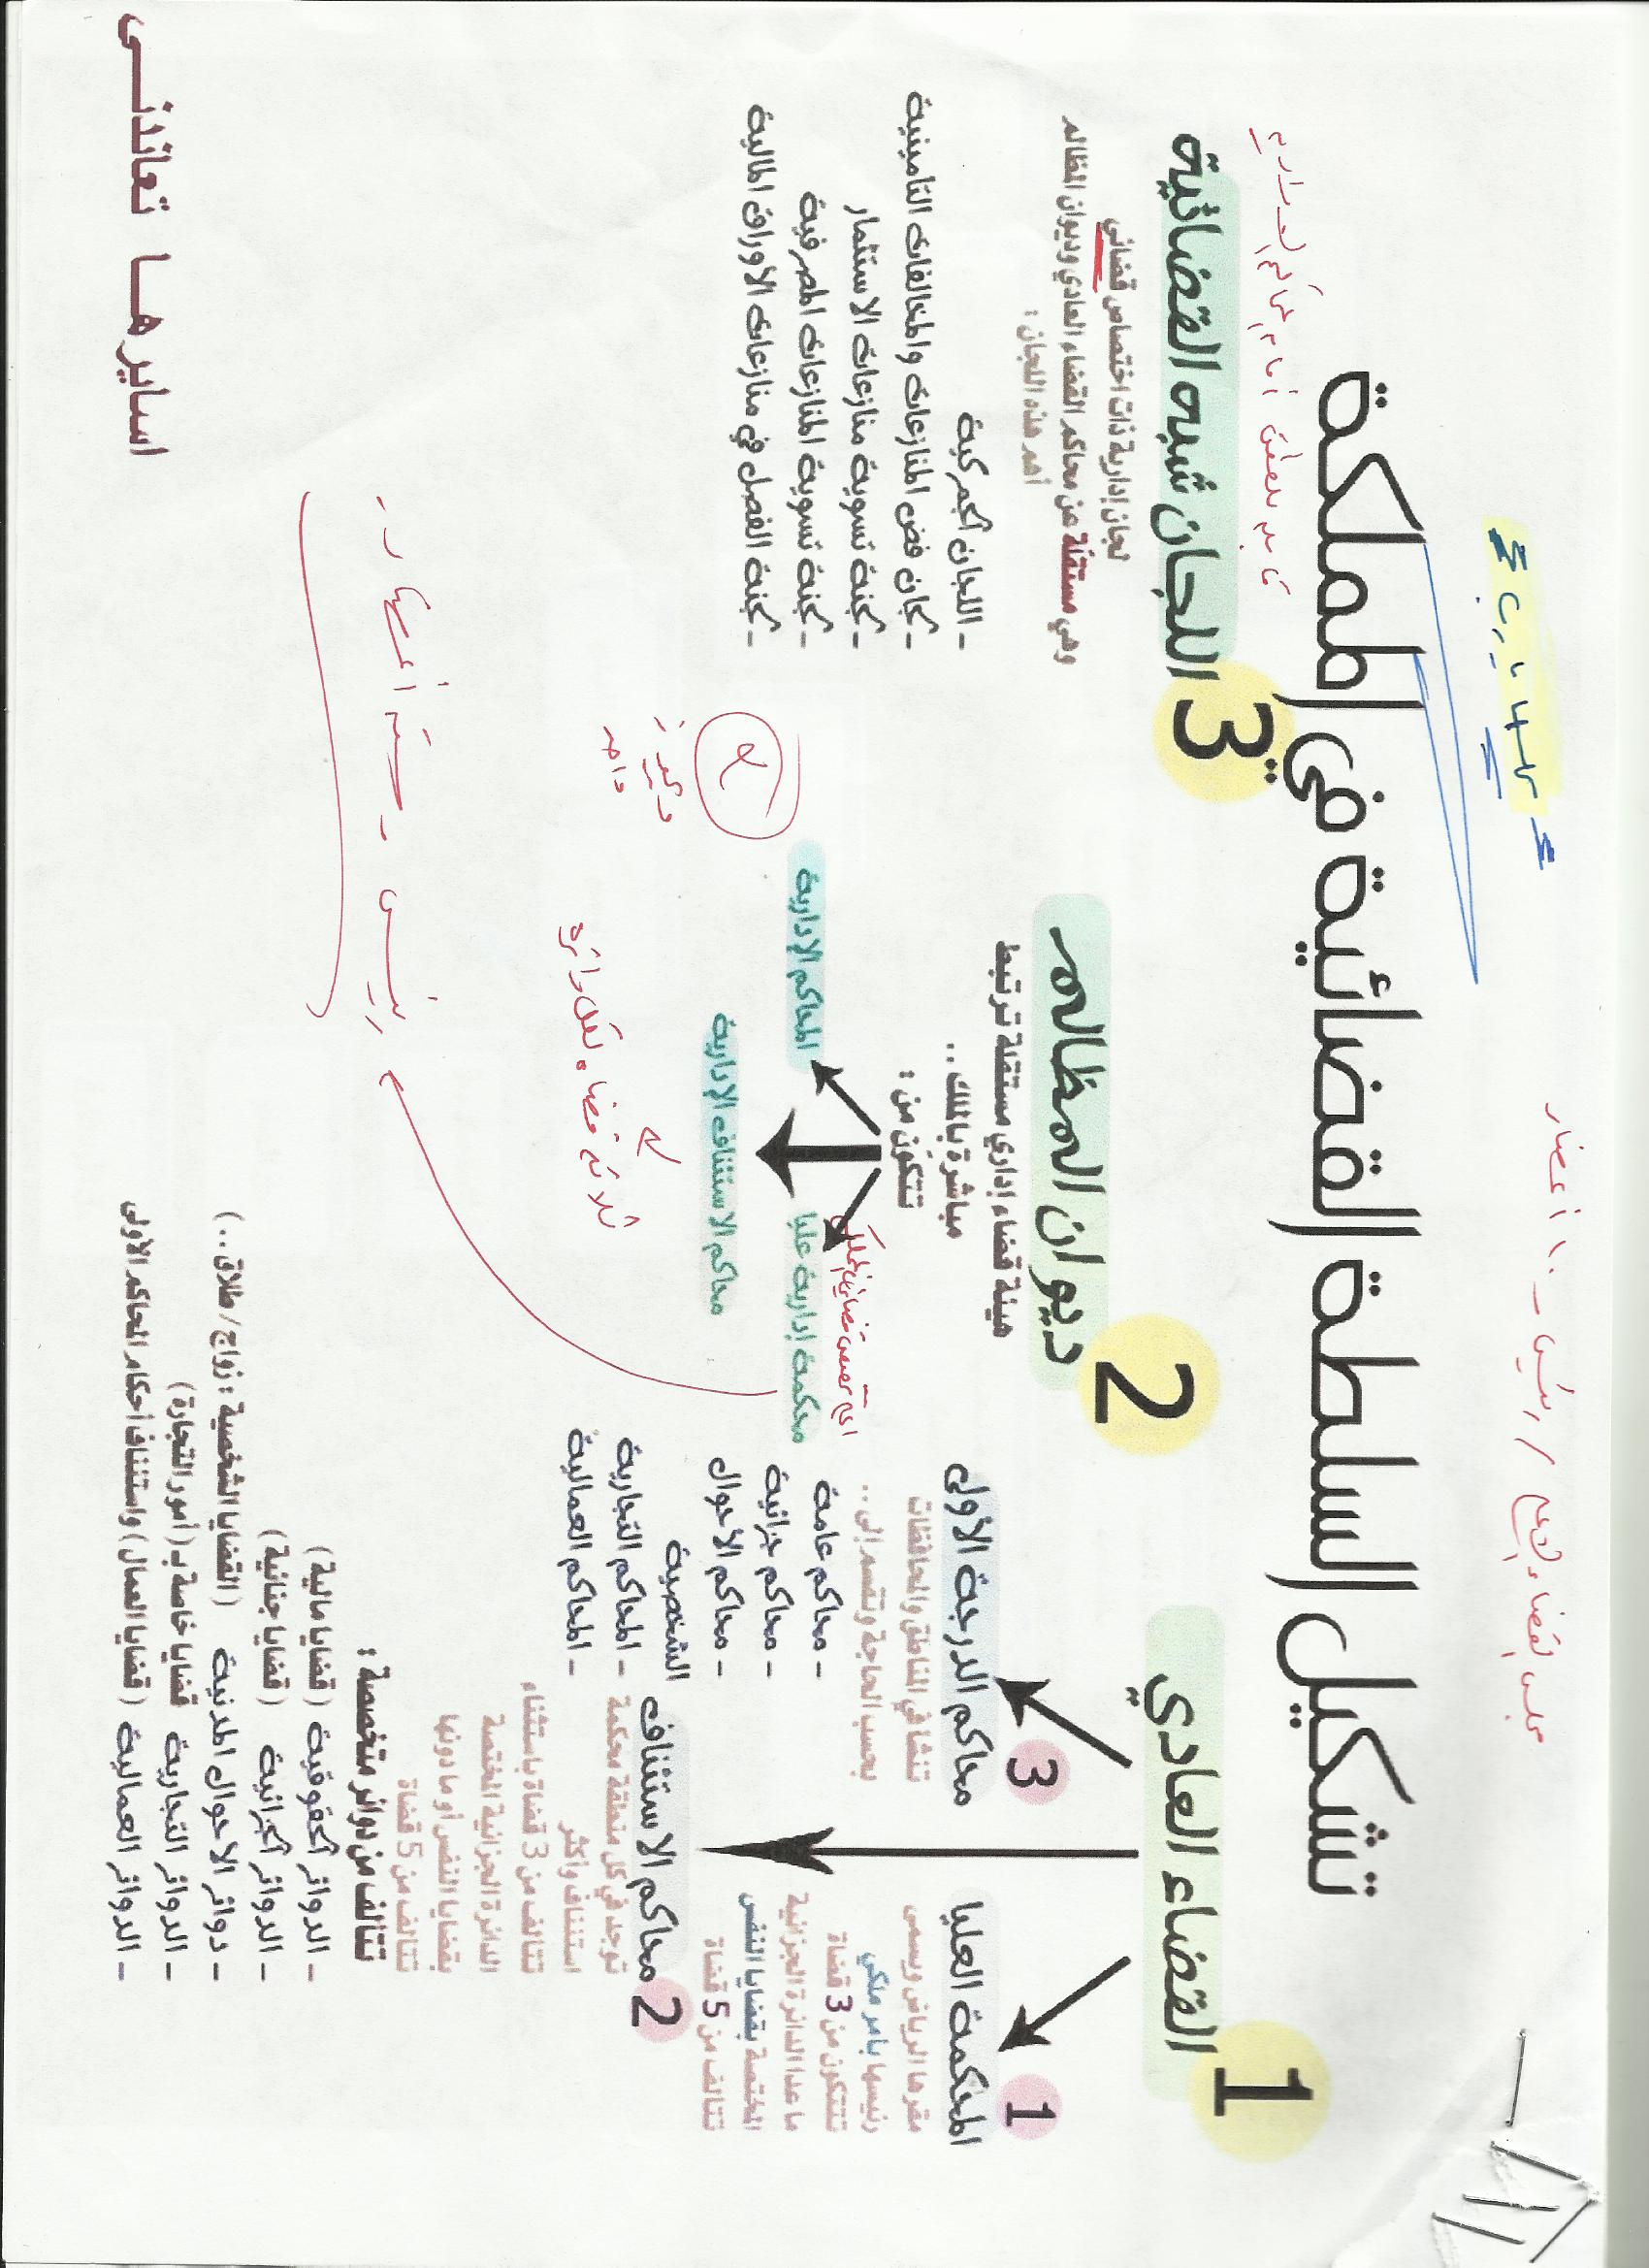 تشكيل السلطة القضائية في المملكة
مجلس القضاء
1
القضاء العادي
1
المحكمة العليا
مقرها الرياض ويسمى
رئيسها بأمر ملكي
تتكون من 3 قضاة
ما عدا الدائرة الجزائية
المختصة بقضايا النفس
تتألف من 5 قضاة
2
محاكم الاستئناف
توجد في كل منطقة محكمة
استئناف وأكثر
تتألف من 3 قضاة باستثناء
الدائرة الجزائية المختصة
بقضايا النفس أو ما دونها
تتألف من 5 قضاة
تتألف من دوائر متخصصة :
- الدوائر الحقوقية ( قضايا مالية )
- الدوائر الجزائية ( قضايا جنائية )
- دوائر الاحوال المدنية ( القضايا الشخصية : زواج / طلاق .. )
- الدوائر التجارية قضايا خاصة بـ ( أمور التجارة )
- الدوائر العمالية ( قضايا العمال ) واستئناف أحكام المحاكم الأولى
3
محاكم الدرجة الأولى
تنشأ في المناطق والمحافظات
بحسب الحاجة وتقسم إلى ..
- محاكم عامة
- محاكم جزائية
- محاكم الاحوال
الشخصية
- المحاكم التجارية
- المحاكم العمالية
2
ديوان المظالم
هيئة قضاء إداري مستقلة ترتبط
مباشرة بالملك ..
تتكون من :
محكمة إدارية عليا
محاكم الاستئناف الإدارية
المحاكم الإدارية
ثلاثة قضاه لكل دائرة
3
اللجان شبه القضائية
لجان إدارية ذات اختصاص قضائي
وهي مستقلة عن محاكم القضاء العادي وديوان المظالم
أهم هذه اللجان :
- اللجان الجمركية
- لجان فض المنازعات والمخالفات التأمينية
- لجنة تسوية منازعات الاستثمار
- لجنة تسوية المنازعات المصرفية
- لجنة الفصل في منازعات الاوراق المالية
اسايرها تعاندنى